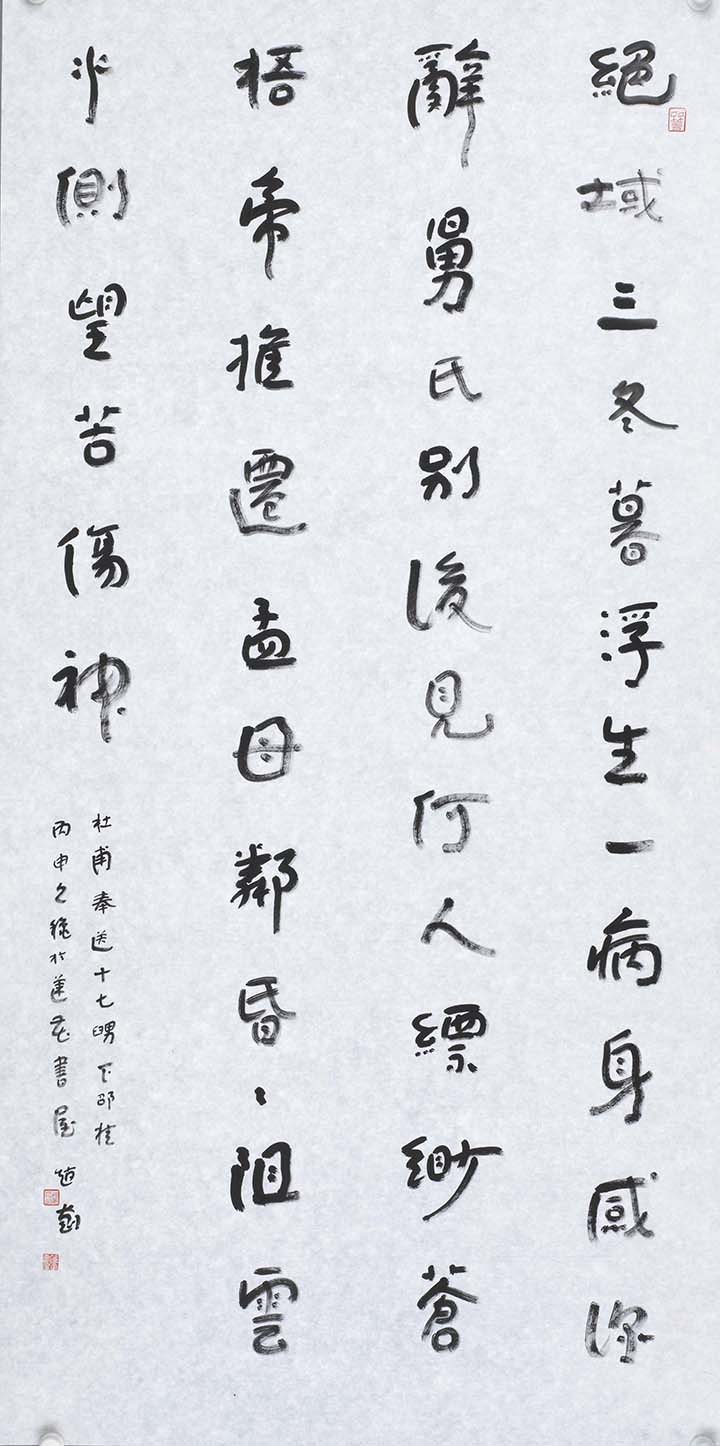 絕域三冬暮浮生一病身感深
辭舅氏別後見何人縹緲蒼
梧帝推遷孟母鄰昏〻阻雲
水側望苦傷神
杜甫奉送十七舅下邵桂
丙申之穐於蓮花書屋